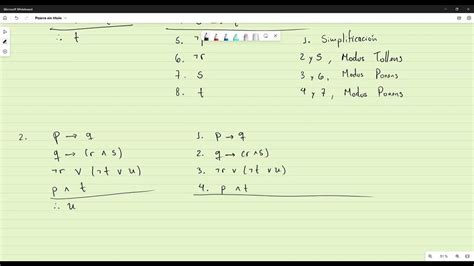 Microsoft Whiteboard
Pizarra sin título
∴ t
5. ¬p 1. Simplificación
6. ¬r 2 y 5, Modus Tollens
7. s 3 y 6, Modus Ponens
8. t 4 y 7, Modus Ponens
2. p → q 1. p → q
q → (r ∧ s) 2. q → (r ∧ s)
¬r ∨ (¬t ∨ u) 3. ¬r ∨ (¬t ∨ u)
p ∧ t 4. p ∧ t
∴ u